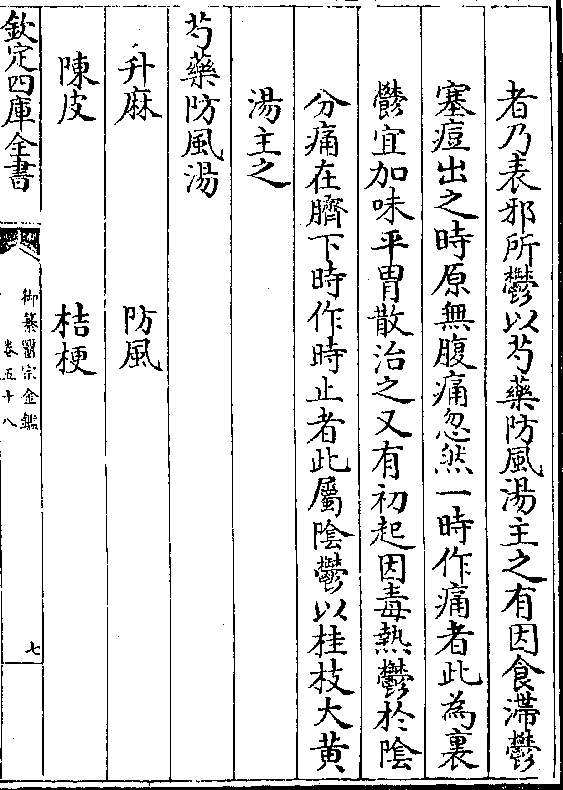 者乃表邪所鬱以芍藥防風湯主之有因食滯鬱
塞痘出之時原無腹痛忽然一時作痛者此為裏
鬱宜加味平胃散治之又有初起因毒熱鬱於陰
分痛在臍下時作時止者此屬陰鬱以桂枝大黃
湯主之
芍藥防風湯
升麻　防風
陳皮　桔梗
欽定四庫全書
御纂醫宗金鑑
卷五十八
七